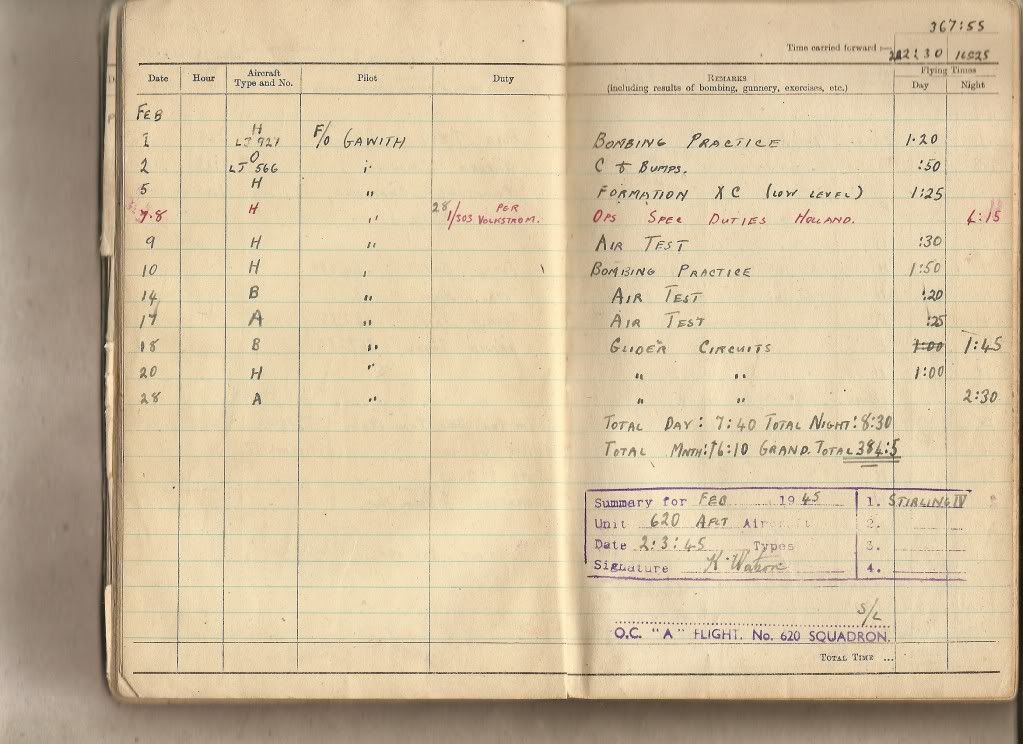 367:55
Time carried forward :— 212:30 165:25
Date Hour Aircraft Type and No. Pilot Duty REMARKS (including results of bombing, gunnery, exercises, etc.) Flying Times Day Night
FEB
1 H LJ 921 F/O GAWITH BOMBING PRACTICE 1.20
2 O LJ 566 " C & BUMPS. :50
5 H " FORMATION XC (LOW LEVEL) 1:25
7.8 H " 28 1/503 PER VOLKSTROM. OPS SPEC DUTIES HOLLAND. 4:15
9 H " AIR TEST :30
10 H " BOMBING PRACTICE 1:50
14 B " AIR TEST :20
17 A " AIR TEST :25
18 B " GLIDER CIRCUITS 1:00 1:45
20 H " " " 1:00
28 A " " " 2:30
TOTAL DAY: 7:40 TOTAL NIGHT: 8:30
TOTAL MNTH: 16:10 GRAND. TOTAL 384:5
Summary for FEB 1945 1. STIRLING IV
Unit 620 AFLT Aircraft 2.
Date 2:3:45 Types 3.
Signature 4.
S/L
O.C. "A" FLIGHT. No. 620 SQUADRON.
TOTAL TIME ...